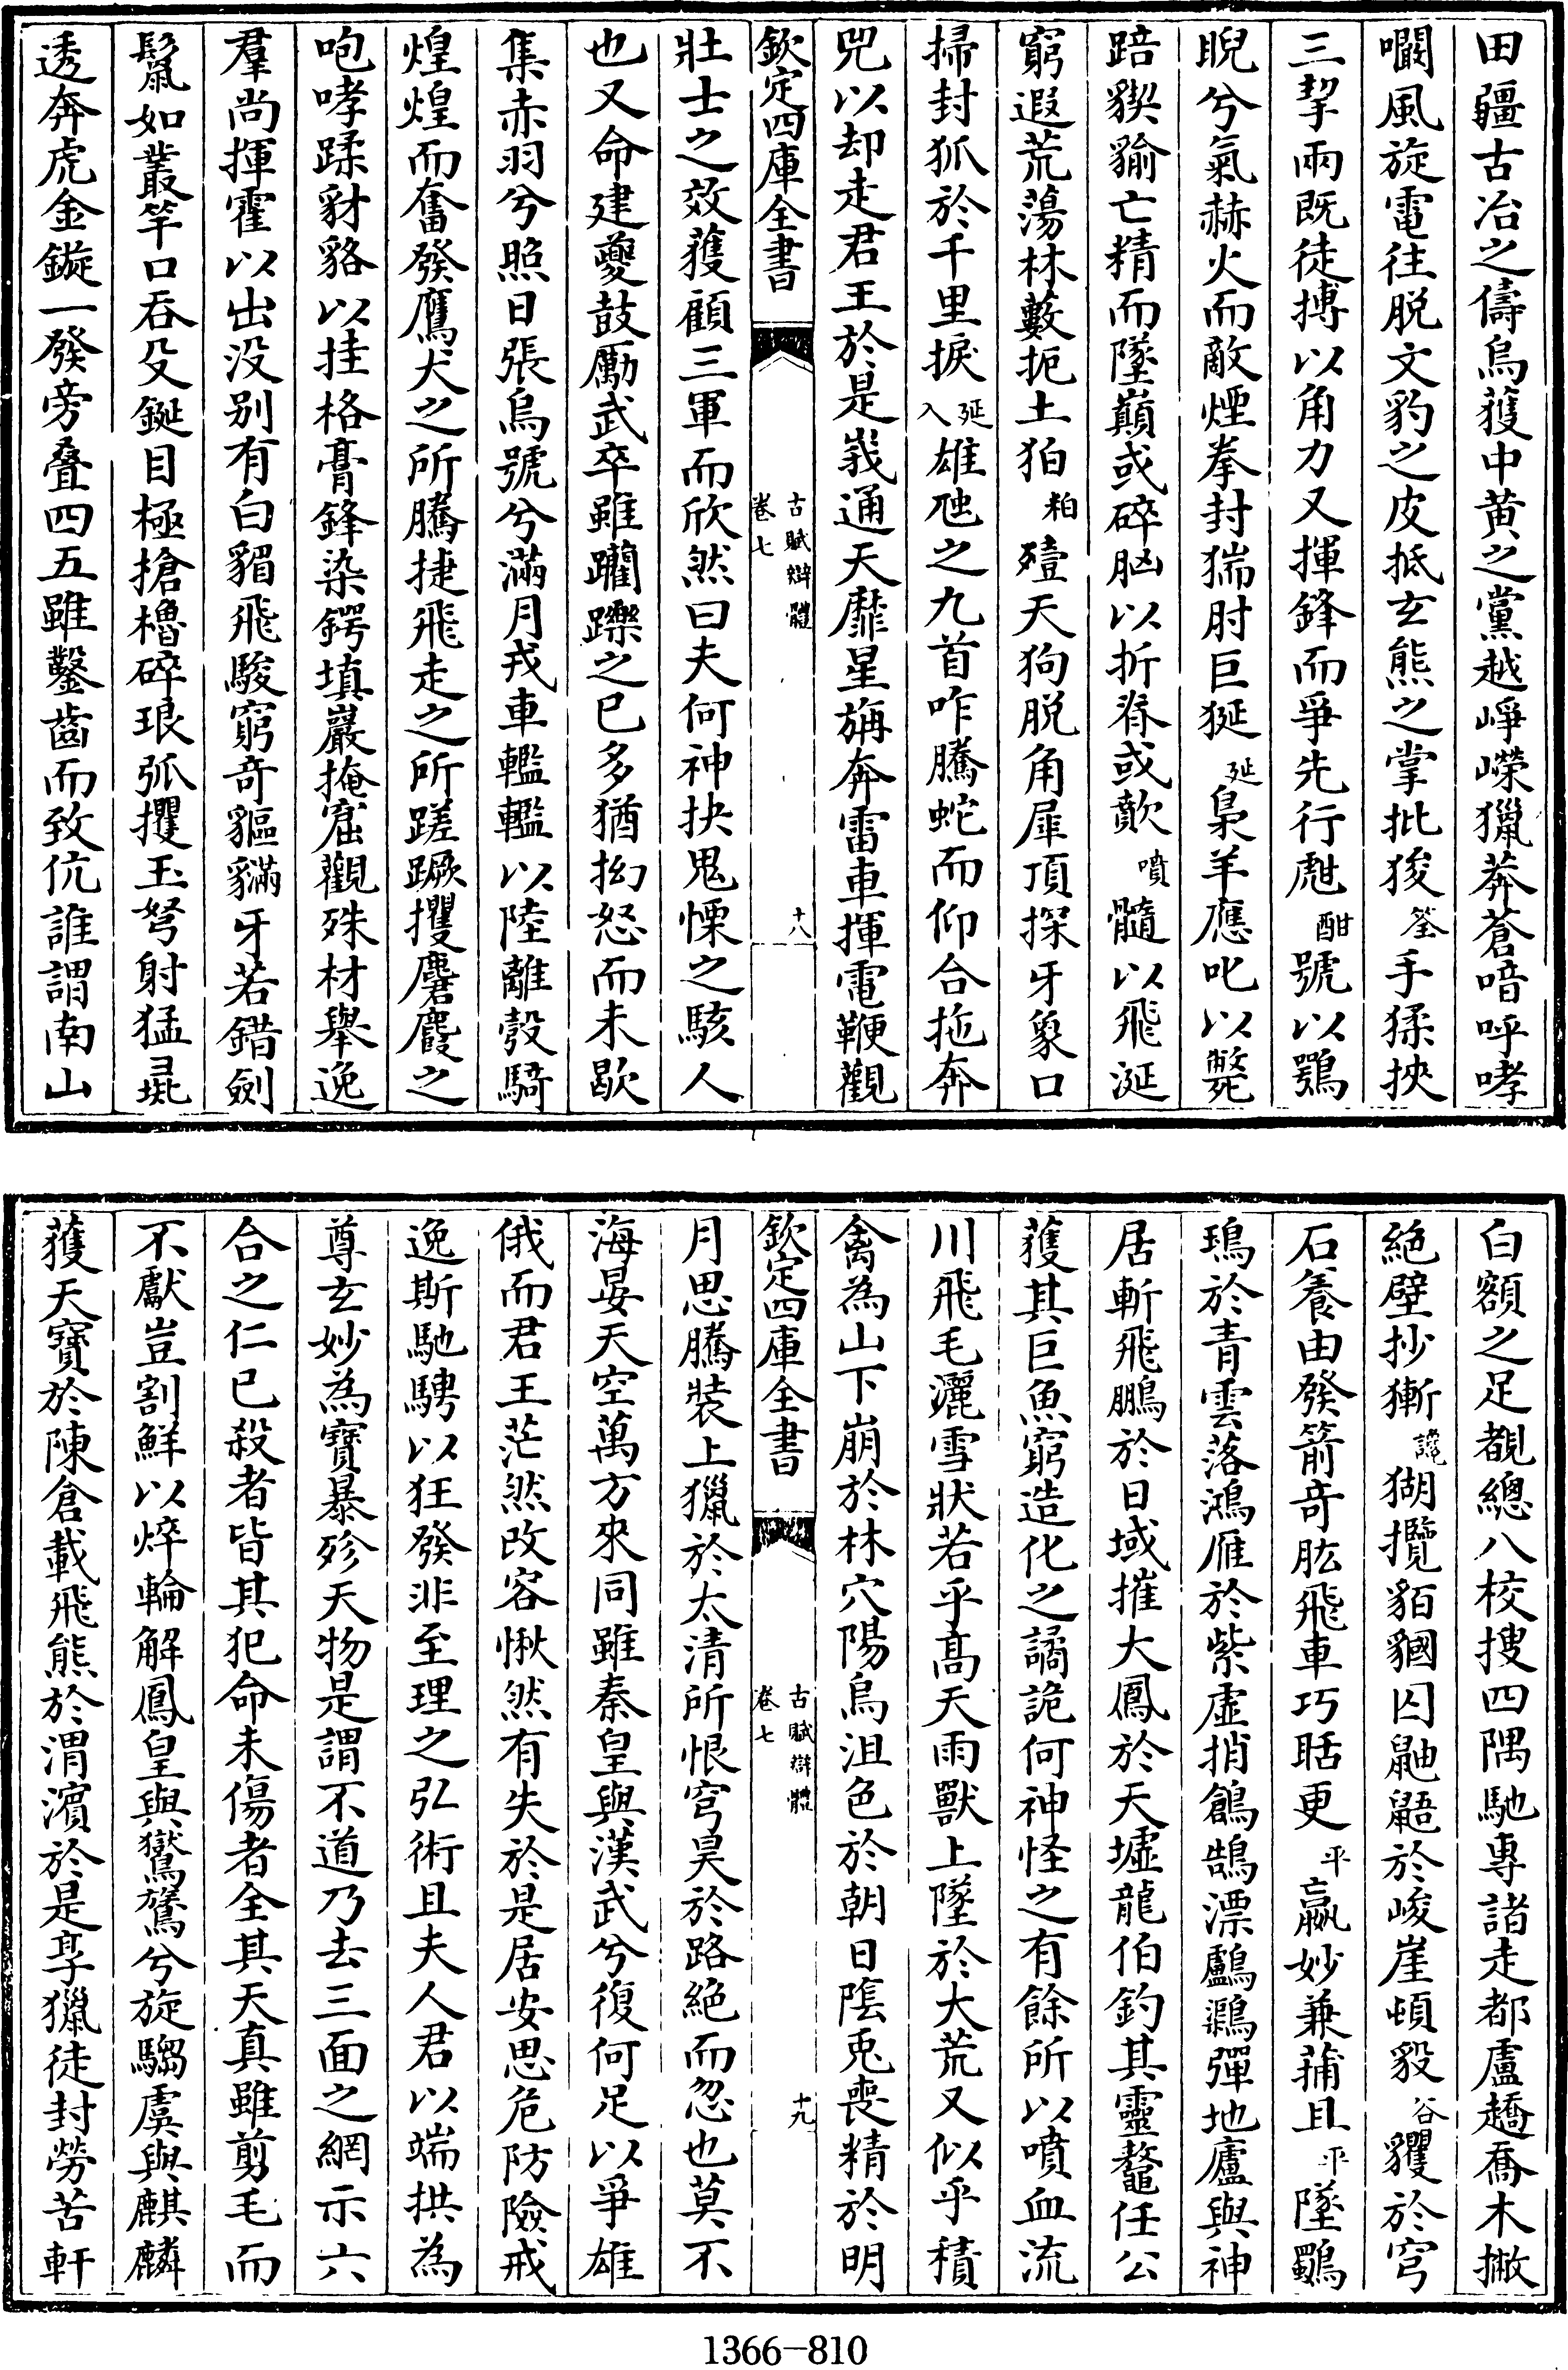 田疆古冶之儔烏獲中黄之黨越崢嶸獵莽蒼喑呼哮
㘚風旋電往脱文豹之皮抵玄熊之掌批狻筌手猱挾
三挈兩既徒搏以角力又揮鋒而爭先行甝酣號以鶚
睨兮氣赫火而敵煙拳封猯肘巨狿延梟羊應叱以斃
踣猰貐亡精而墜巔或碎脳以折脊或歕噴髓以飛涎
窮遐荒蕩林藪扼土狛粕殪天狗脱角犀頂探牙象口
掃封狐於千里捩延入雄虺之九首咋騰蛇而仰合拖奔
兕以却走君王於是峩通天靡星旃奔雷車揮電鞭觀
欽定四庫全書
古賦辯體
卷七
十八
壯士之效獲顧三軍而欣然曰夫何神抉鬼慄之駭人
也又命建夔鼓厲武卒雖躪躒之已多猶拗怒而未歇
集赤羽兮照日張烏號兮滿月戎車轞轞以陸離彀騎
煌煌而奮發鷹犬之所騰捷飛走之所蹉蹶攫麏麚之
咆哮蹂豺貉以挂格膏鋒染鍔填巖掩窟觀殊材舉逸
羣尚揮霍以出没别有白䝞飛駿窮竒貙㺧牙若錯劍
鬣如叢竿口吞殳鋋目極搶櫓碎琅弧攫玉弩射猛彘
透奔虎金鏃一發旁叠四五雖鑿齒而致伉誰謂南山
白額之足覩總八校搜四隅馳專諸走都盧趫喬木撇
絶壁抄獑䜛猢攬貊㹮囚鼬鼯於峻崖頓㲉谷玃於穹
石養由發箭竒肱飛車巧聒更平嬴妙兼蒱且平墜鸀
鳿於青雲落鴻雁於紫虛捎鶬鵠漂鸕鷀彈地廬與神
居斬飛鵬於日域摧大鳳於天墟龍伯釣其靈鼇任公
獲其巨魚窮造化之譎詭何神怪之有餘所以噴血流
川飛毛灑雪狀若乎髙天雨獸上墜於大荒又似乎積
禽為山下崩於林穴陽烏沮色於朝日陰兎喪精於明
欽定四庫全書
古賦辯體
卷七
十九
月思騰裝上獵於太清所恨穹昊於路絶而忽也莫不
海晏天空萬方來同雖秦皇與漢武兮復何足以爭雄
俄而君王茫然改容愀然有失於是居安思危防險戒
逸斯馳騁以狂發非至理之弘術且夫人君以端拱為
尊玄妙為寶暴殄天物是謂不道乃去三面之網示六
合之仁已殺者皆其犯命未傷者全其天真雖剪毛而
不獻豈割鮮以焠輪解鳳皇與鸑鷟兮旋騶虞與麒麟
獲天寶於陳倉載飛熊於渭濱於是享獵徒封勞苦軒
1366-810